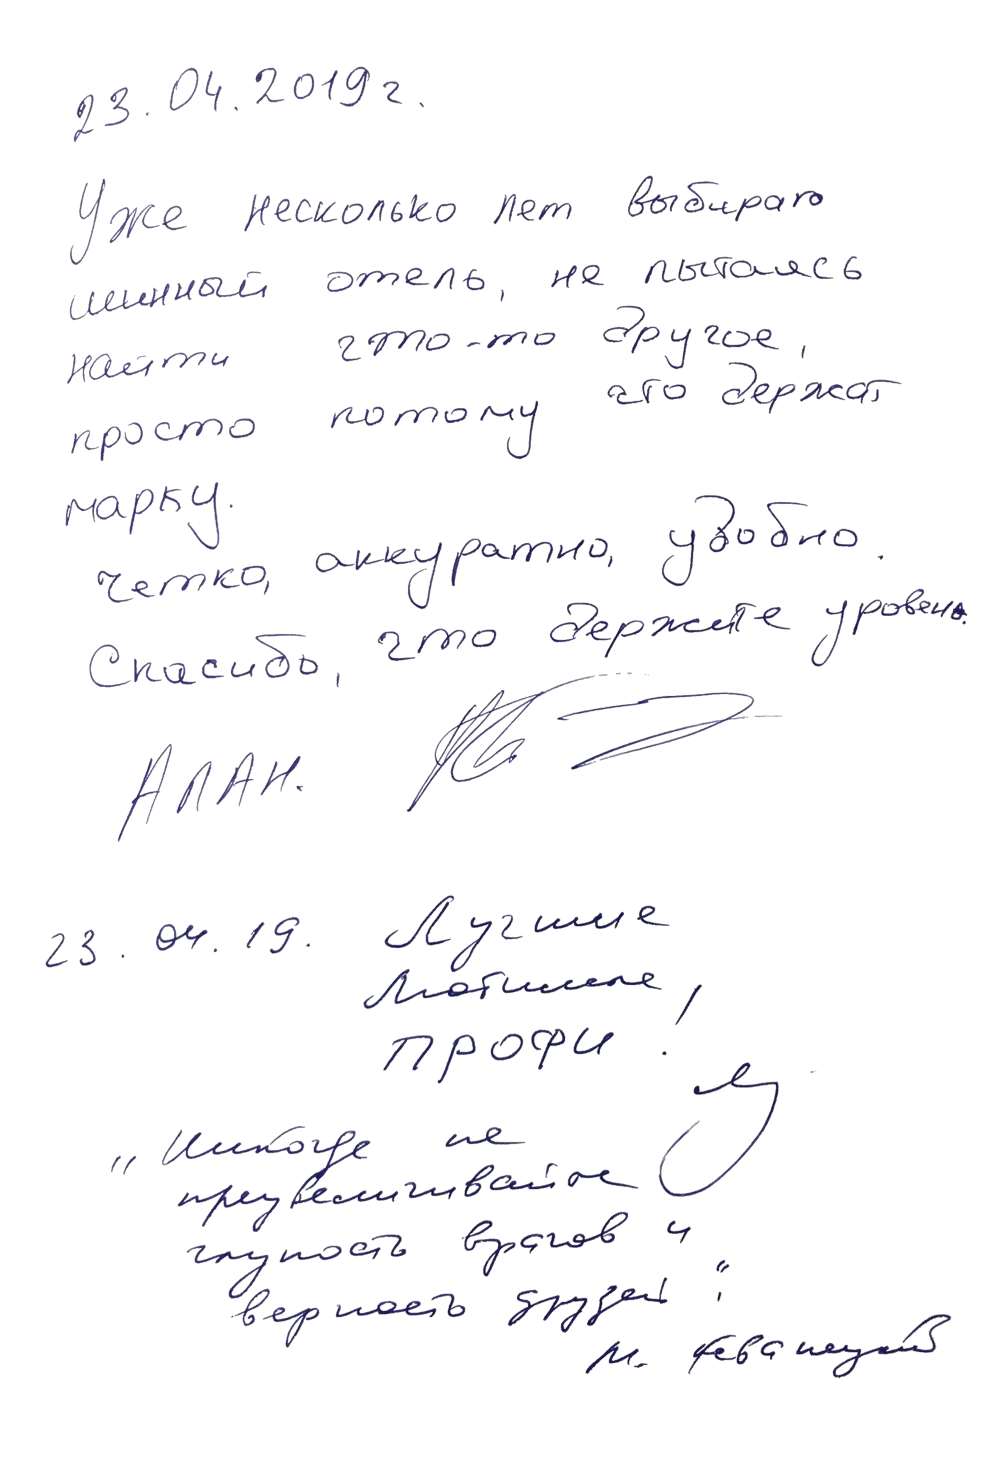 23.04.2019г.
Уже несколько лет выбираю
шинный отель, не пытаясь
найти что-то другое,
просто потому что держат
марку.
Четко, аккуратно, удобно.
Спасибо, что держите уровень.
Алан.
23.04.19. Лучшие
ПРОФИ!
„Никогда не
преувеличивайте
глупость врагов и
верность друзей“.
М. Жванецкий